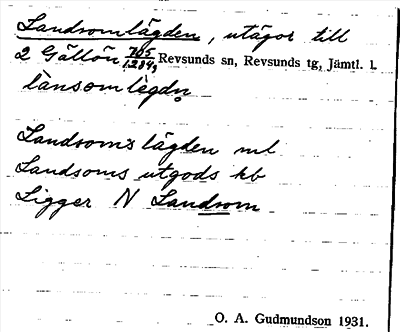 Landsomlägden, utägor till
2 Gällön Revsunds sn, Revsunds tg, Jämtl. l.
länsomlègdn
Landsomslägden ml
Landsoms utgods kb
Ligger N Landsom
O. A. Gudmundson 1931.